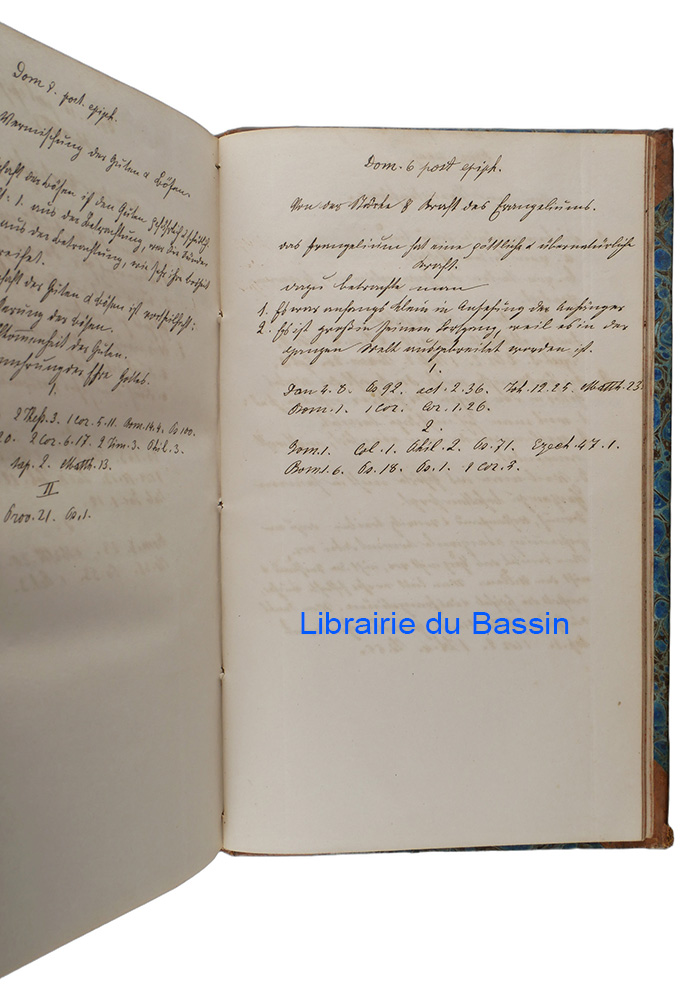 Dom 5. post epiph.
Vermischung der Guten & Bösen.
schaft der Bösen ist den Guten
1. aus der Betrachtung, was die Sünden
aus der Betrachtung, wie sehr ihre Bosheit
reitzet.
schaft der Guten & Bösen ist vortheilhaft:
serung der Bösen.
llkommenheit der Guten.
mehrung der Ehre Gottes.
1.
2 Thess. 3. 1 Cor. 5. 11. Rom. 14.4. Ps 100.
20. 2 Cor. 6. 17. 2 Tim. 3. Phil. 3.
Sap. 2. Matth. 13.
II
Prov. 21. Ps. 1.
Dom. 6 post epiph.
Von der Stärke & Kraft des Evangeliums.
Das Evangelium hat eine göttliche & übernatürliche
Kraft.
Dazu betrachte man
1. Es war anfangs klein in Ansehung der Anhänger
2. Es ist groß in seinem Fortgang, weil es in der
ganzen Welt ausgebreitet worden ist.
1.
Dan 2. 8. Ps 92. act. 2. 36. Joh. 12. 25. Matth. 23.
Rom. 1. 1 Cor. Cor. 1. 26.
2.
Rom. 1. Col. 1. Phil. 2. Ps. 71. Ezech. 47. 1.
Rom. 6. Ps. 18. Ps. 1. 1 Cor. 3.
Librairie du Bassin